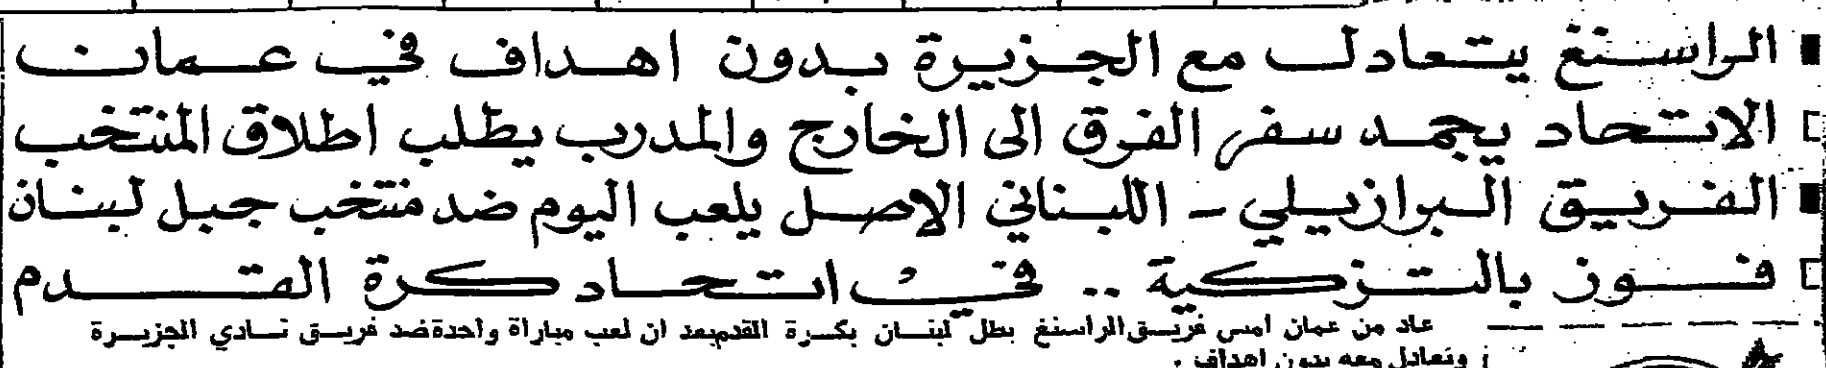 الراسنغ يتعادل مع الجزيرة بدون اهداف في عمان
الاتحاد يجمد سفر الفرق الى الخارج والمدرب يطلب اطلاق المنتخب
الفريق البرازيلي - اللبناني الاصل يلعب اليوم ضد منتخب جبل لبنان
فوز بالتزكية .. في اتحاد كرة القدم
عاد من عمان امس فريق الراسنغ بطل لبنان بكرة القدم بعد ان لعب مباراة واحدة ضد فريق نادي الجزيرة
وتعادل معه بدون اهداف .